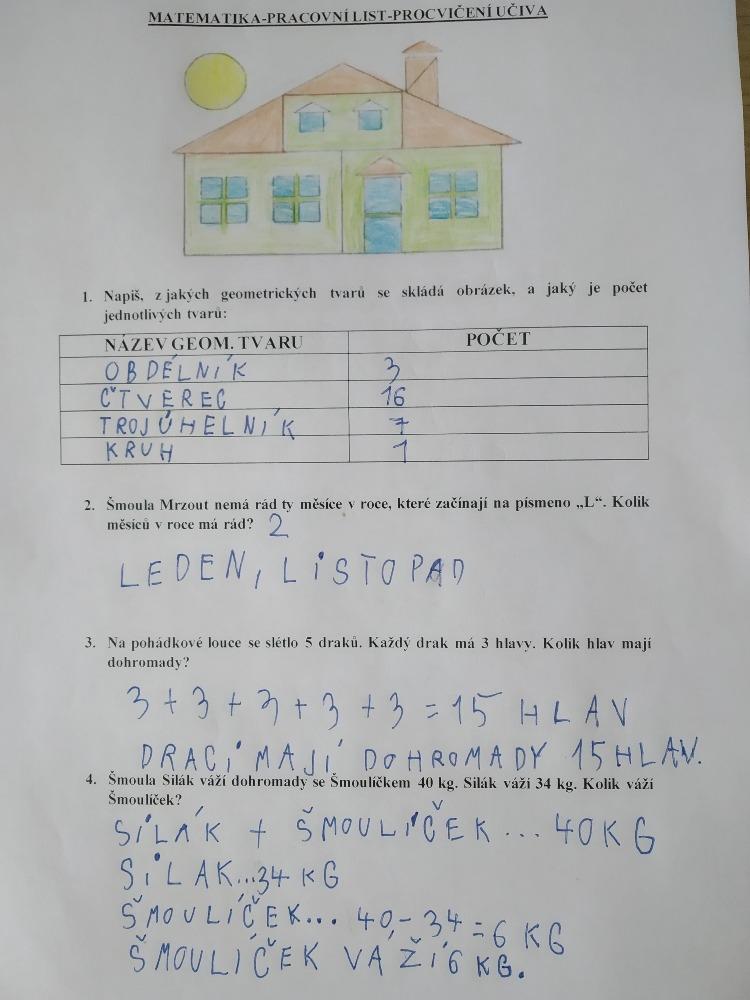 MATEMATIKA-PRACOVNÍ LIST-PROCVIČENÍ UČIVA
1. Napiš, z jakých geometrických tvarů se skládá obrázek, a jaký je počet
jednotlivých tvarů:
NÁZEV GEOM. TVARU POČET
OBDÉLNÍK 3
ČTVEREC 16
TROJÚHELNÍK 7
KRUH 1
2. Šmoula Mrzout nemá rád ty měsíce v roce, které začínají na písmeno „L“. Kolik
měsíců v roce má rád? 2
LEDEN, LISTOPAD
3. Na pohádkové louce se slétlo 5 draků. Každý drak má 3 hlavy. Kolik hlav mají
dohromady?
3 + 3 + 3 + 3 + 3 = 15 HLAV
DRACI MAJÍ DOHROMADY 15 HLAV.
4. Šmoula Silák váží dohromady se Šmoulíčkem 40 kg. Silák váží 34 kg. Kolik váží
Šmoulíček?
SILÁK + ŠMOULÍČEK... 40KG
SILAK...34 KG
ŠMOULÍČEK... 40,- 34 = 6 KG
ŠMOULÍČEK VÁŽÍ 6 KG.